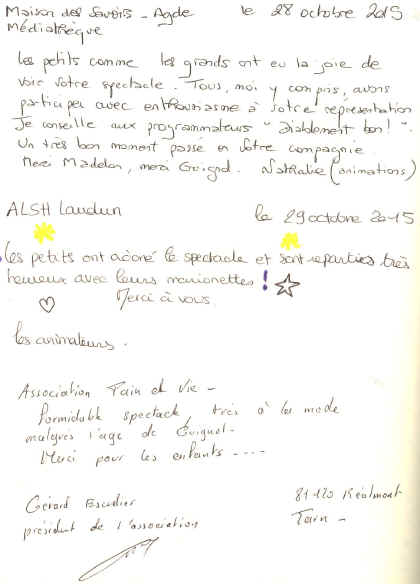 Maison des Savoirs - Agde le 28 octobre 2015
Médiathèque
Les petits comme les grands ont eu la joie de
voir votre spectacle. Tous, moi y compris, avons
participer avec enthousiasme à votre représentation
Je conseille aux programmateurs "diablement bon!".
Un très bon moment passé en votre compagnie.
Merci Madelon, merci Guignol. Nathalie (animations)
ALSH Laudun le 29 octobre 2015
Les petits ont adoré le spectacle et sont repartis très
heureux avec leurs marionettes!
Merci à vous
Les animateurs.
Association Pain et Vie -
formidable spectacle, très à la mode
malgrès l'age de Guignol -
Merci pour les enfants ----
Gérard Escudier 81120 Réalmont
président de l'association Tarn -